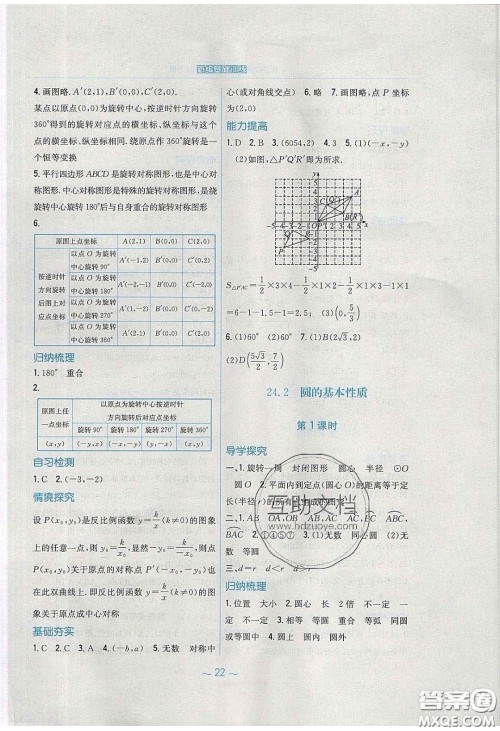 新编基础训练
4.画图略. A′(2,1), B′(0,0), C′(2,0).
某点以原点(0,0)为旋转中心,按逆时针方向旋转
360°得到的旋转对应点的横坐标、纵坐标与原来的
横坐标、纵坐标相同. 绕原点作360°旋转变换是一
个恒等变换
5.平行四边形ABCD是旋转对称图形,也是中心对
称图形. 中心对称图形是特殊的旋转对称图形,是绕
旋转中心旋转180°后与自身重合的旋转对称图形
6.
原图上点坐标 A(2,1) B(0,0) C(2,0)
按逆时针方向旋转后图上对应点坐标
以点O为旋转中心旋转90° A′(-1,2) B′(0,0) C′(0,2)
以点O为旋转中心旋转180° A′(-2,-1) B′(0,0) C′(-2,0)
以点O为旋转中心旋转270° A′(1,-2) B′(0,0) C′(0,-2)
以点O为旋转中心旋转360° A′(2,1) B′(0,0) C′(2,0)
归纳梳理
1.180° 重合
2.
原图上任一点坐标 以原点为旋转中心按逆时针方向旋转后对应点坐标
旋转90° 旋转180° 旋转270° 旋转360°
(x,y) (-y,x) (-x,-y) (y,-x) (x,y)
自习检测
1.C 2.(-3,-2)
情境探究
设P(x₀,y₀)是反比例函数y=k/x(k≠0)的图象
上的任意一点,则y₀=k/x₀,∴-y₀=k/-x₀,又∵点
P(x₀,y₀)关于原点的对称点P′(-x₀,-y₀)也
在此双曲线上,∴反比例函数y=k/x(k≠0)的图
象关于原点成中心对称
基础夯实
1.C 2.C 3.A 4.(-b,a) 5.无数 对称中
心(或对角线交点) 6.略 7.画图略,点P坐标
为(2,0)
能力提高
1.D 2.B 3.(6054,2) 4.3 5.(1)(-x,-y)
(2)如图,△P′Q′R′即为所求.
S△PAC=1/2×3×4-1/2×1×2-1/2×1×3-1/2×1×3
=6-1-1.5-1.5=2 (3)(0,5/3)
6.(1)60° (2)B(2√3,2)
7.(1)60°
(2)D(5√3/2,7/2)
24.2 圆的基本性质
第1课时
导学探究
一、1.旋转一周 封闭图形 圆心 半径 ⊙O
圆O 2.平面内到定点(圆心O)的距离等于定
长(半径r)的所有点组成的图形
二、1.AB OA,OB AB,AC BC,EC ABC,
BAC 2.①④⑤⑦ 3.(1)无数 同心圆 (2)无
数 等圆
三、d=r d<r d>r
归纳梳理
1.位置 大小 圆心 长 2倍 不一定 一
定 2.不一定 相等 等圆 重合 等弧 同圆
或等圆中 4.圆上 圆内 圆外
互助文档
www.hdzuoye.com
～22～
答案圈
MXQE.COM